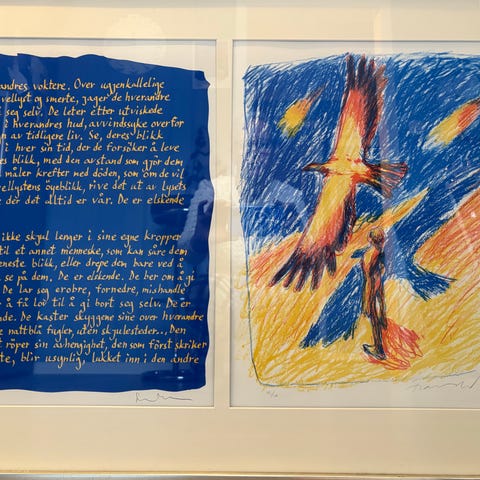 andres voktere. Over ugjenkallelige
vellyst og smerte, jager de hverandre
seg selv. De leter etter utviskede
i hverandres hud, avvindsyke overfor
en av tidligere liv. Se, deres blikk
i hver sin tid, der de forsøker å leve
es blikk, med den avstand som gjør dem
måler krefter med döden, som om de vil
vellystens öyeblikk, rive det ut av lysets
e der det alltid er vår. De er elskende
ikke skjul lenger i sine egne kropper
til et annet menneske, som kan såre dem
eneste blikk, eller drepe dem bare ved å
se på dem. De er elskende. De ber om å gi
De lar seg erobre, fornedre, mishandle
å få lov til å gi bort seg selv. De er
nde. De kaster skyggene sine over hverandre
e nattblå fugler, uten skjulesteder... Den
t röper sin avhengighet, den som först skriker
te, blir usynlig, lukket inn i den andre